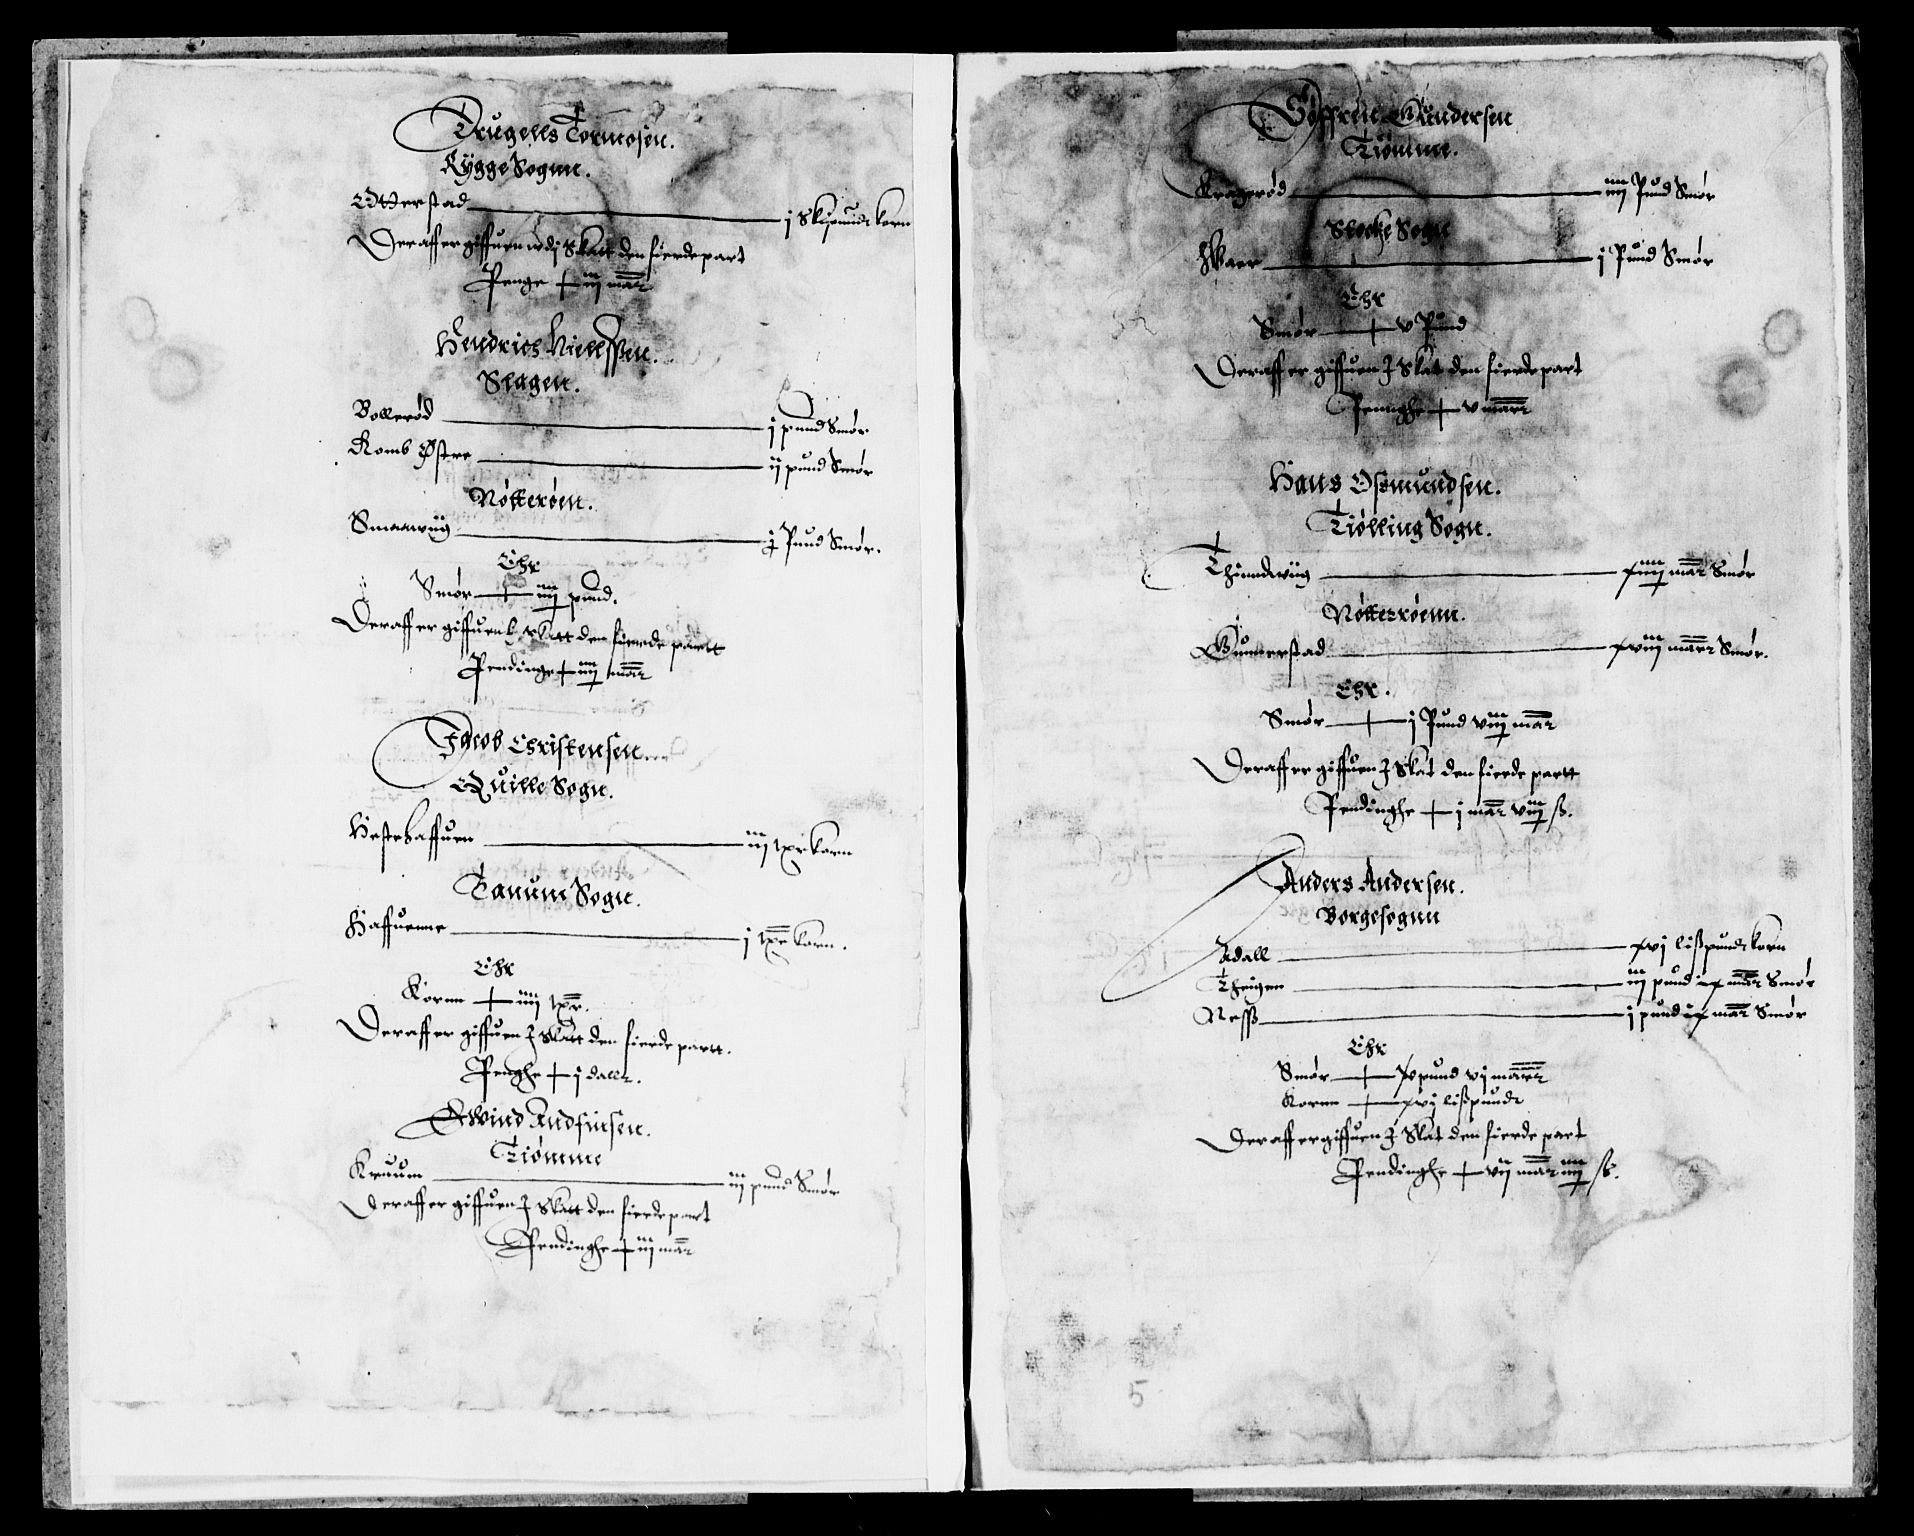 Trugells Tormosen.
Rygge Sognn.
Otterstad — j Skippund korn
Deraff er giffuen wdj Skatt den fierdepart
Penge + iij marc
Hendrich Nielssen.
Slagen.
Bollerød — j pund Smør
Romb Østre — ij pund Smør
Nøtterøen.
Smaawiig — j Pund Smør.
Ehr
Smør + iiij pund.
Deraff er giffuen J skatt den fierde partt
Pendinge + iiij marc
Jacob Christensen
Quille Sogn.
Hestehaffuen — iij korn
Tanum Sogn.
Haffuenne — j korn.
Ehr
Kornn + iiij
Deraff er giffuen J Skatt den fierde partt.
Penghe + j daler.
Ewind Andfinsen.
Tiømme
Kruum — iij pund Smør
Deraff er giffuen J Skatt den fierdepart
Pendinghe + iij marc
Søffren Gundersen
Tiømme.
Kragerød — iiij Pund Smør
Stocke Sogn
hWaer — j Pund Smør
Ehr
Smør + v Pund
Deraff er giffuen J Skat den fierdepart
Pennghe + v marc
Hans Osmundsen.
Tiølling Sogn.
Thinndwiig — xiiij marc Smør
Nøtterøenn.
Gunnerstad — xviij marc Smør.
Ehr.
Smør + j Pund viij marc
Deraff er giffuen J Skat den fierde partt
Pendinghe + j marc viij ß.
Anders Andersen.
Borgesognn
Adall — xvj lißpund korn
Theigen — iij pund ix marc Smør
Ness — j pund ix marc Smør
Ehr
Smør + pund vj marc
Kornn + xvj lißpund
Deraff er giffuen J Skat den fierde part
Pendinghe + vij marc iiij ß.
5